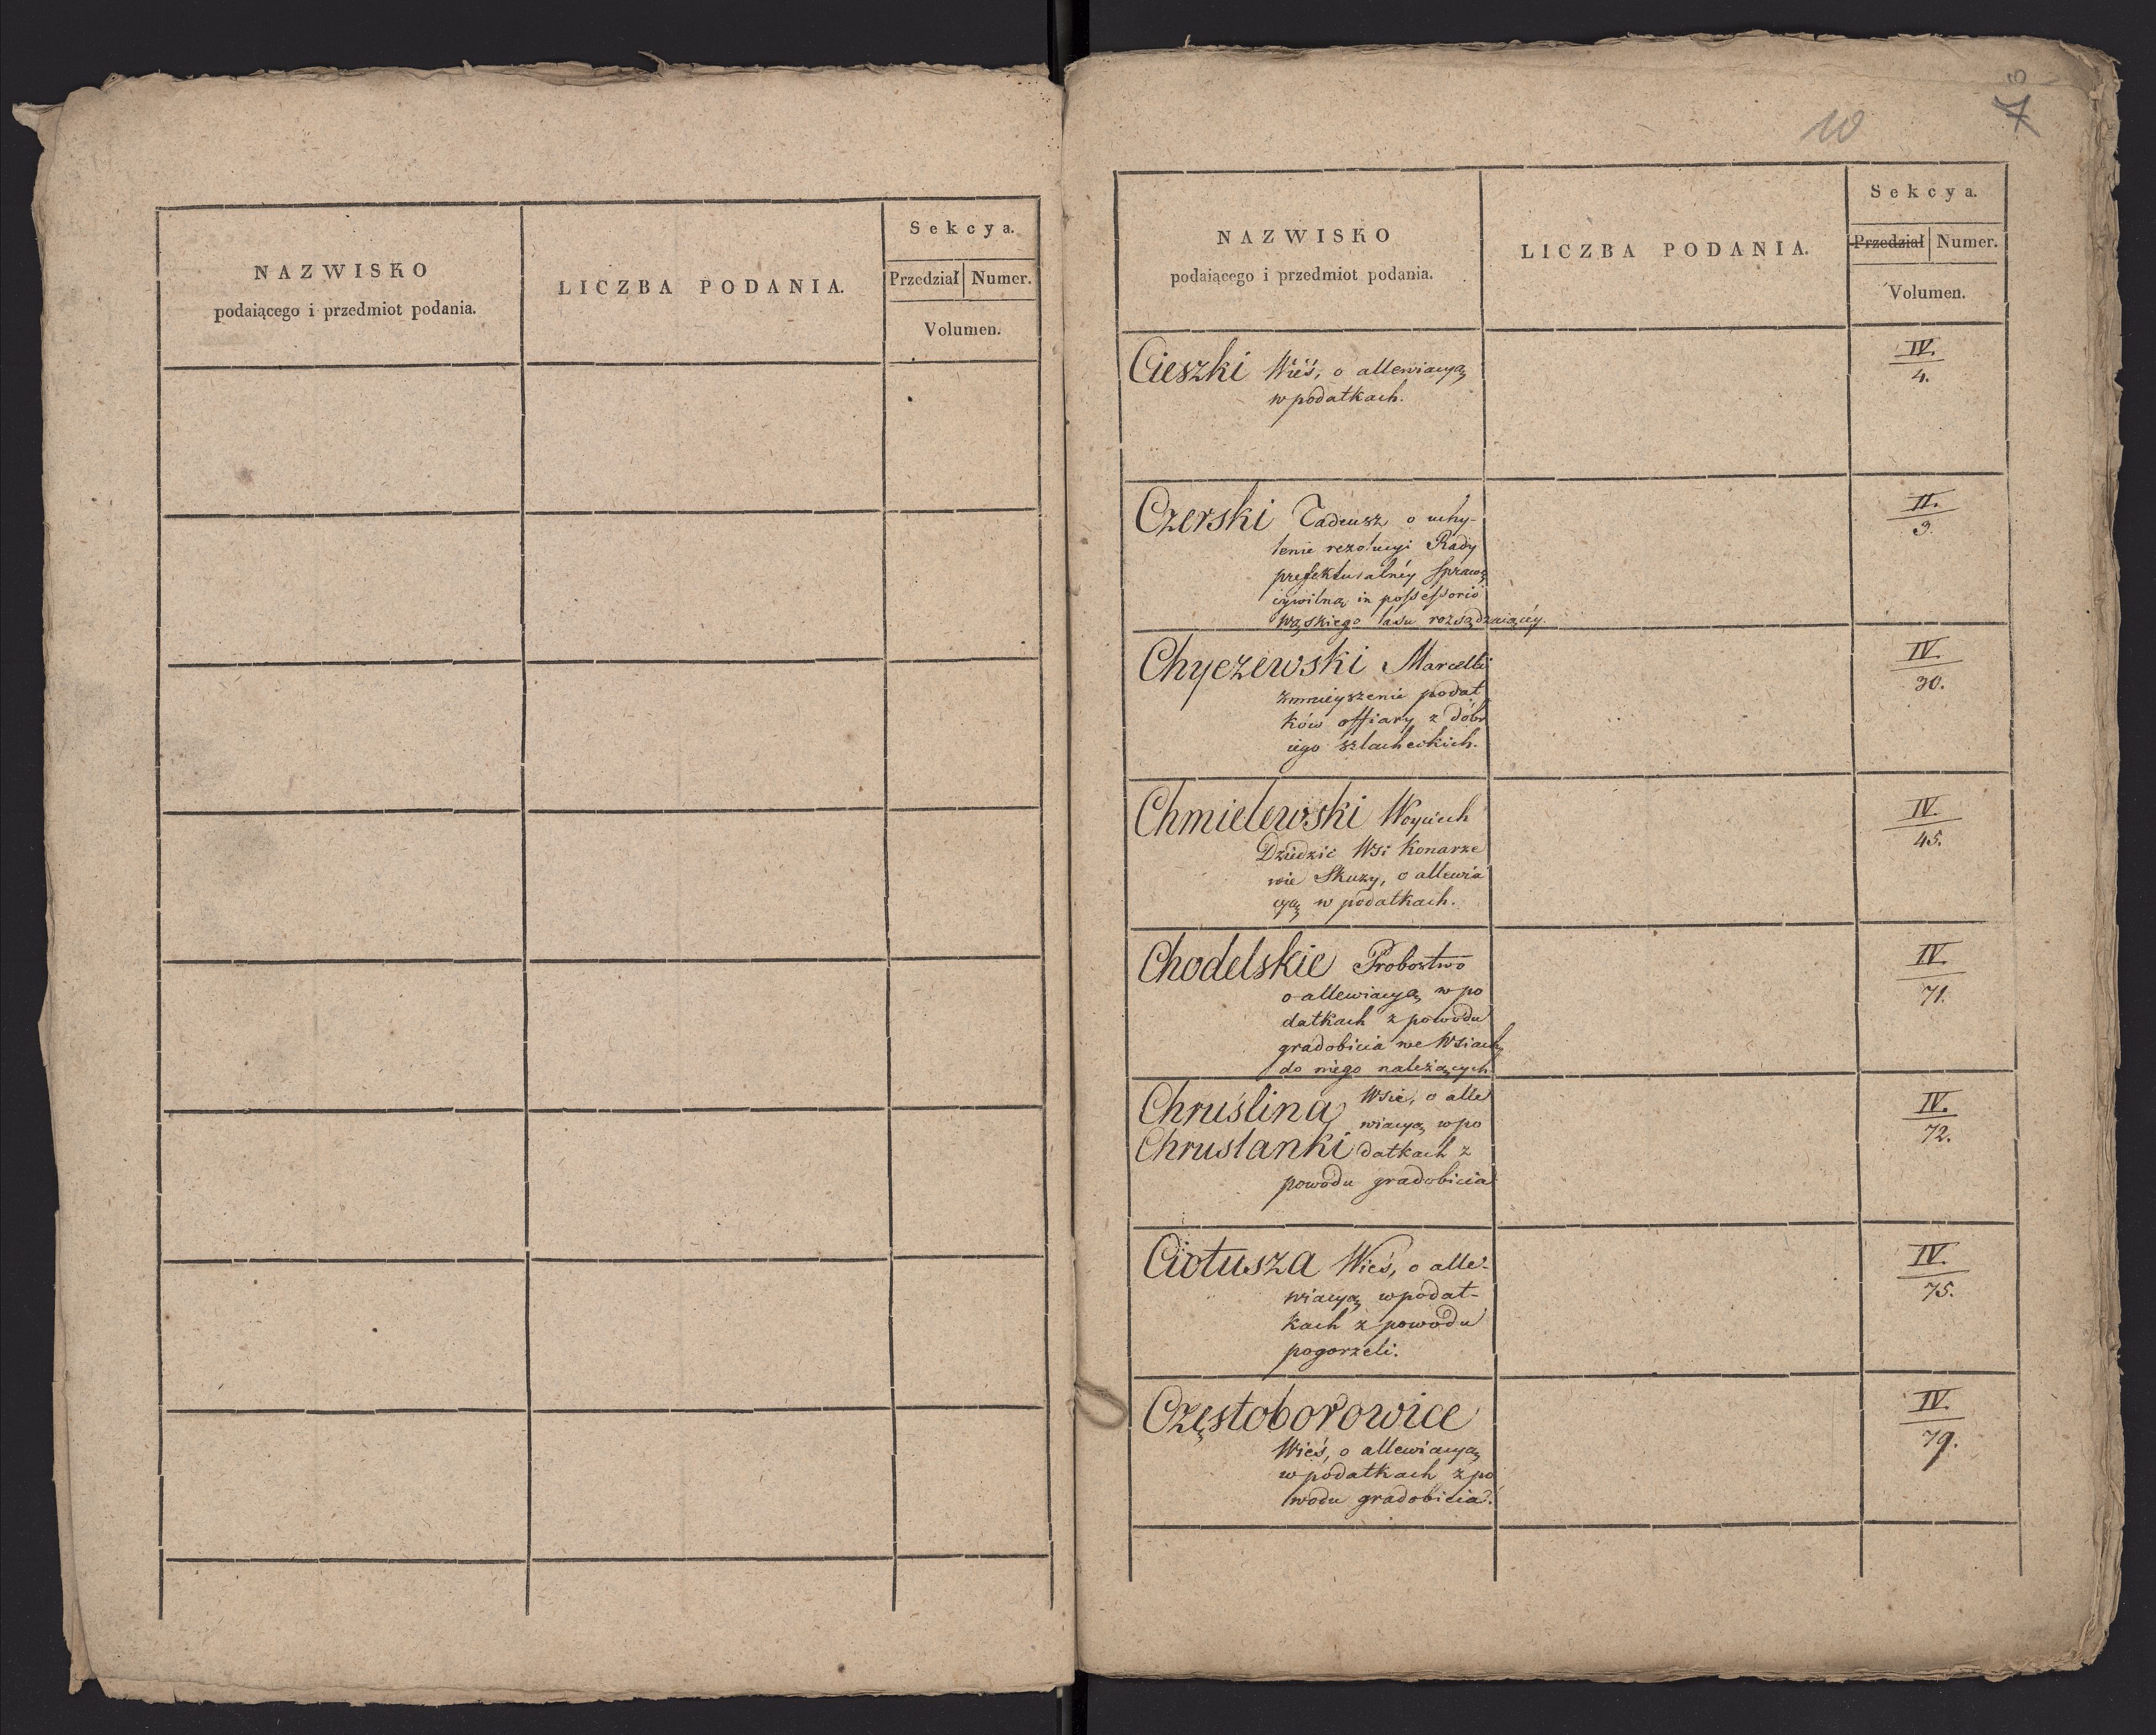 NAZWISKO
podaiącego i przedmiot podania.
LICZBA PODANIA.
Sekcya.
Przedział Numer.
Volumen.
10
7
NAZWISKO
podaiącego i przedmiot podania.
LICZBA PODANIA.
Sekcya.
Przedział Numer.
Volumen.
Cieszki Wieś, o allewiacyą
w podatkach.
IV.
4.
Czerski Tadeusz o uchy-
lenie rezolucyi Rady
prefekturalnéy sprawę
cywilną in possessorio
wąskiego lasu rozsądzaiącéy.
II.
9.
Chyczewski Marcelli
zmnieyszenie podat
ków offiary z dóbr
iego szlacheckich.
IV.
30.
Chmielewski Woyciech
Dziedzic Wsi Konarze
wie Skuzy, o allewia
cyą w podatkach.
IV.
45.
Chodelskie Probostwo
o allewiacyą w po
datkach z powodu
gradobicia we Wsiach
do niego należących
IV.
71.
Chruślina Wsie, o alle
wiacyą w po
Chruslanki datkach z
powodu gradobicia
IV.
72.
Ciotusza Wieś, o alle-
wiacyą w podat-
kach z powodu
pogorzeli.
IV.
75.
Częstoborowice
Wieś, o allewiacyą
w podatkach z po
wodu gradobicia.
IV.
79.